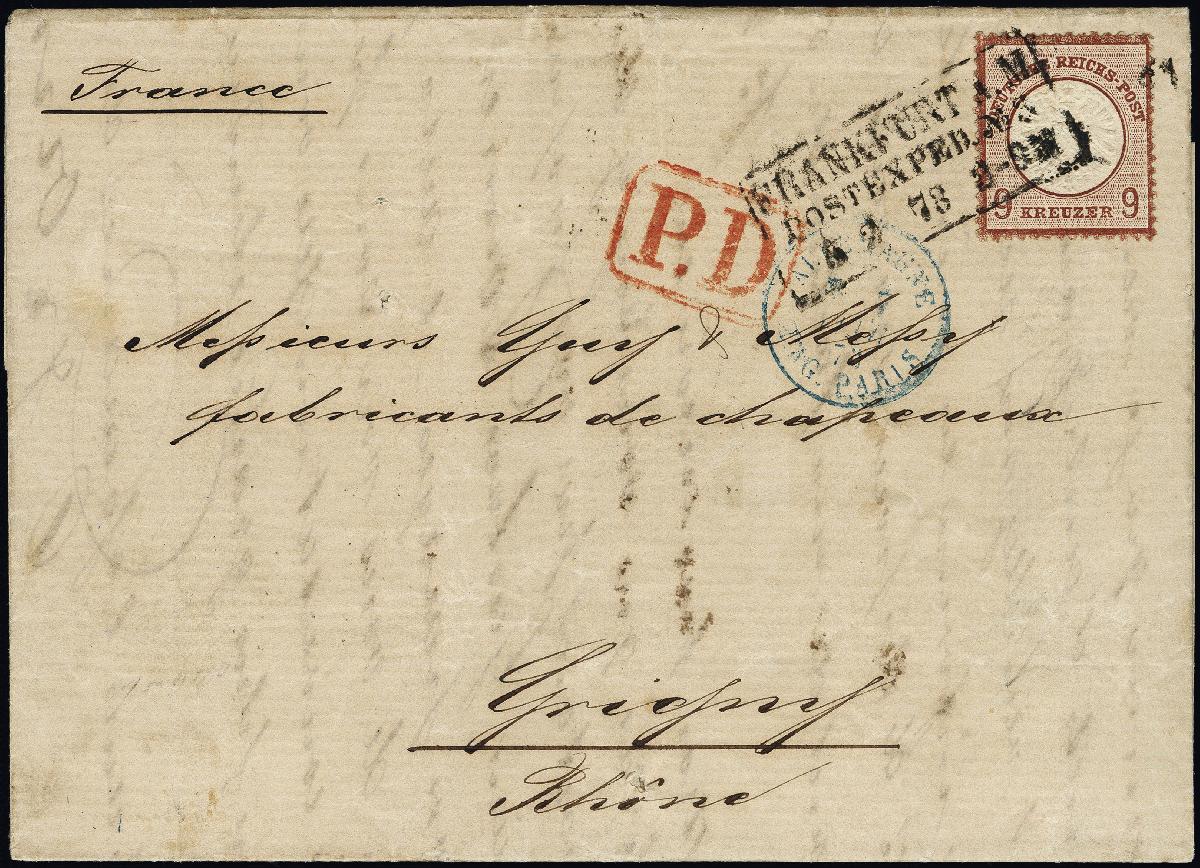 France
DEUTSCHE REICHS-POST
9 KREUZER 9
FRANKFURT A. M.
POSTEXPED.
2 73 2-3N
P.D
PARIS
Messieurs Guy & Messy
fabricants de chapeaux
Grigny
Rhône